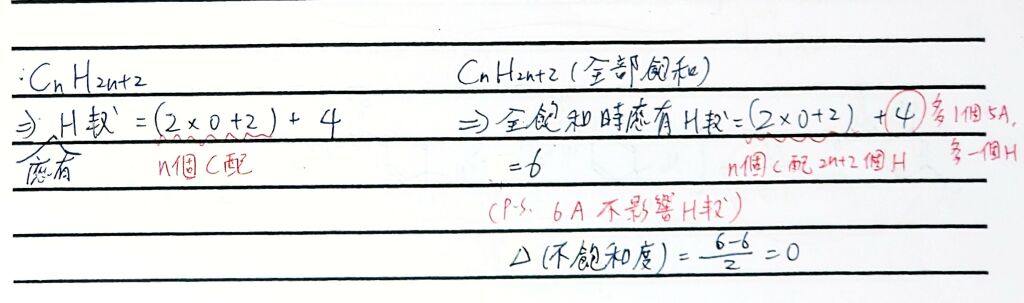 : CnH2n+2
⇒ H數 = (2×0+2) + 4
應有
n個C配
CnH2n+2 (全部飽和)
⇒ 全飽和時應有H數 = (2×0+2) + 4
多1個5A,
多一個H
n個C配2n+2個H
= 6
(P.S. 6A不影響H數)
Δ (不飽和度) = (6-6)/2 = 0